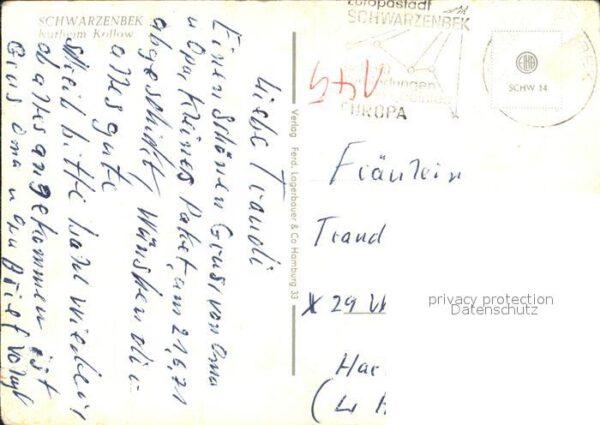 SCHWARZENBEK
Kurheim Kollow
Europastadt
SCHWARZENBEK
EUROPA
SCHW 14
Liebe Traudi
Einen schönen Gruß von Oma
u Opa, kleines Paket, am 21,6,71
abgeschickt, Wünschen dir
alles gute
Schreib bitte bald wieder
ob alles angekommen ist
Gruß Oma u Opa Brief folgt
Verlag Ferd. Lagerbauer & Co Hamburg 33
Fräulein
Traud
X 29
Ha
privacy protection
Datenschutz